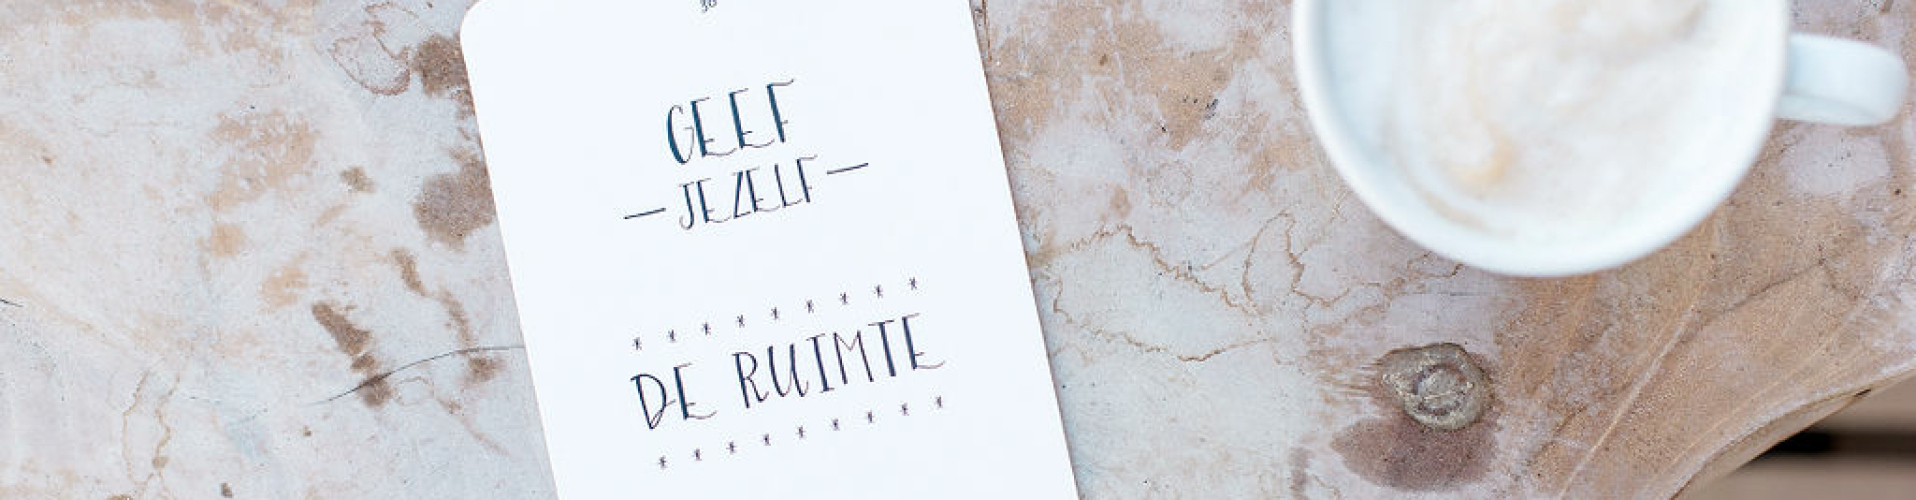 GEEF
— JEZELF —
* * * * * * * * *
DE RUIMTE
* * * * * * * * *